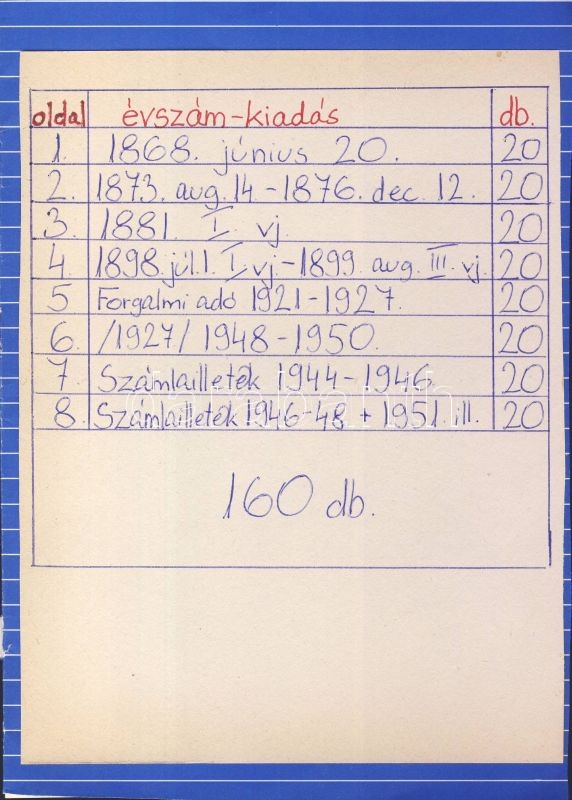 oldal évszám-kiadás db.
1. 1868. június 20. 20
2. 1873. aug. 14 - 1876. dec. 12. 20
3. 1881. I. vj. 20
4. 1898. júl. 1. I. vj. - 1899. aug. III. vj. 20
5 Forgalmi adó 1921-1927. 20
6. /1927/ 1948-1950. 20
7 Számlailleték 1944-1946. 20
8. Számlailleték 1946-48 + 1951. ill. 20
160 db.